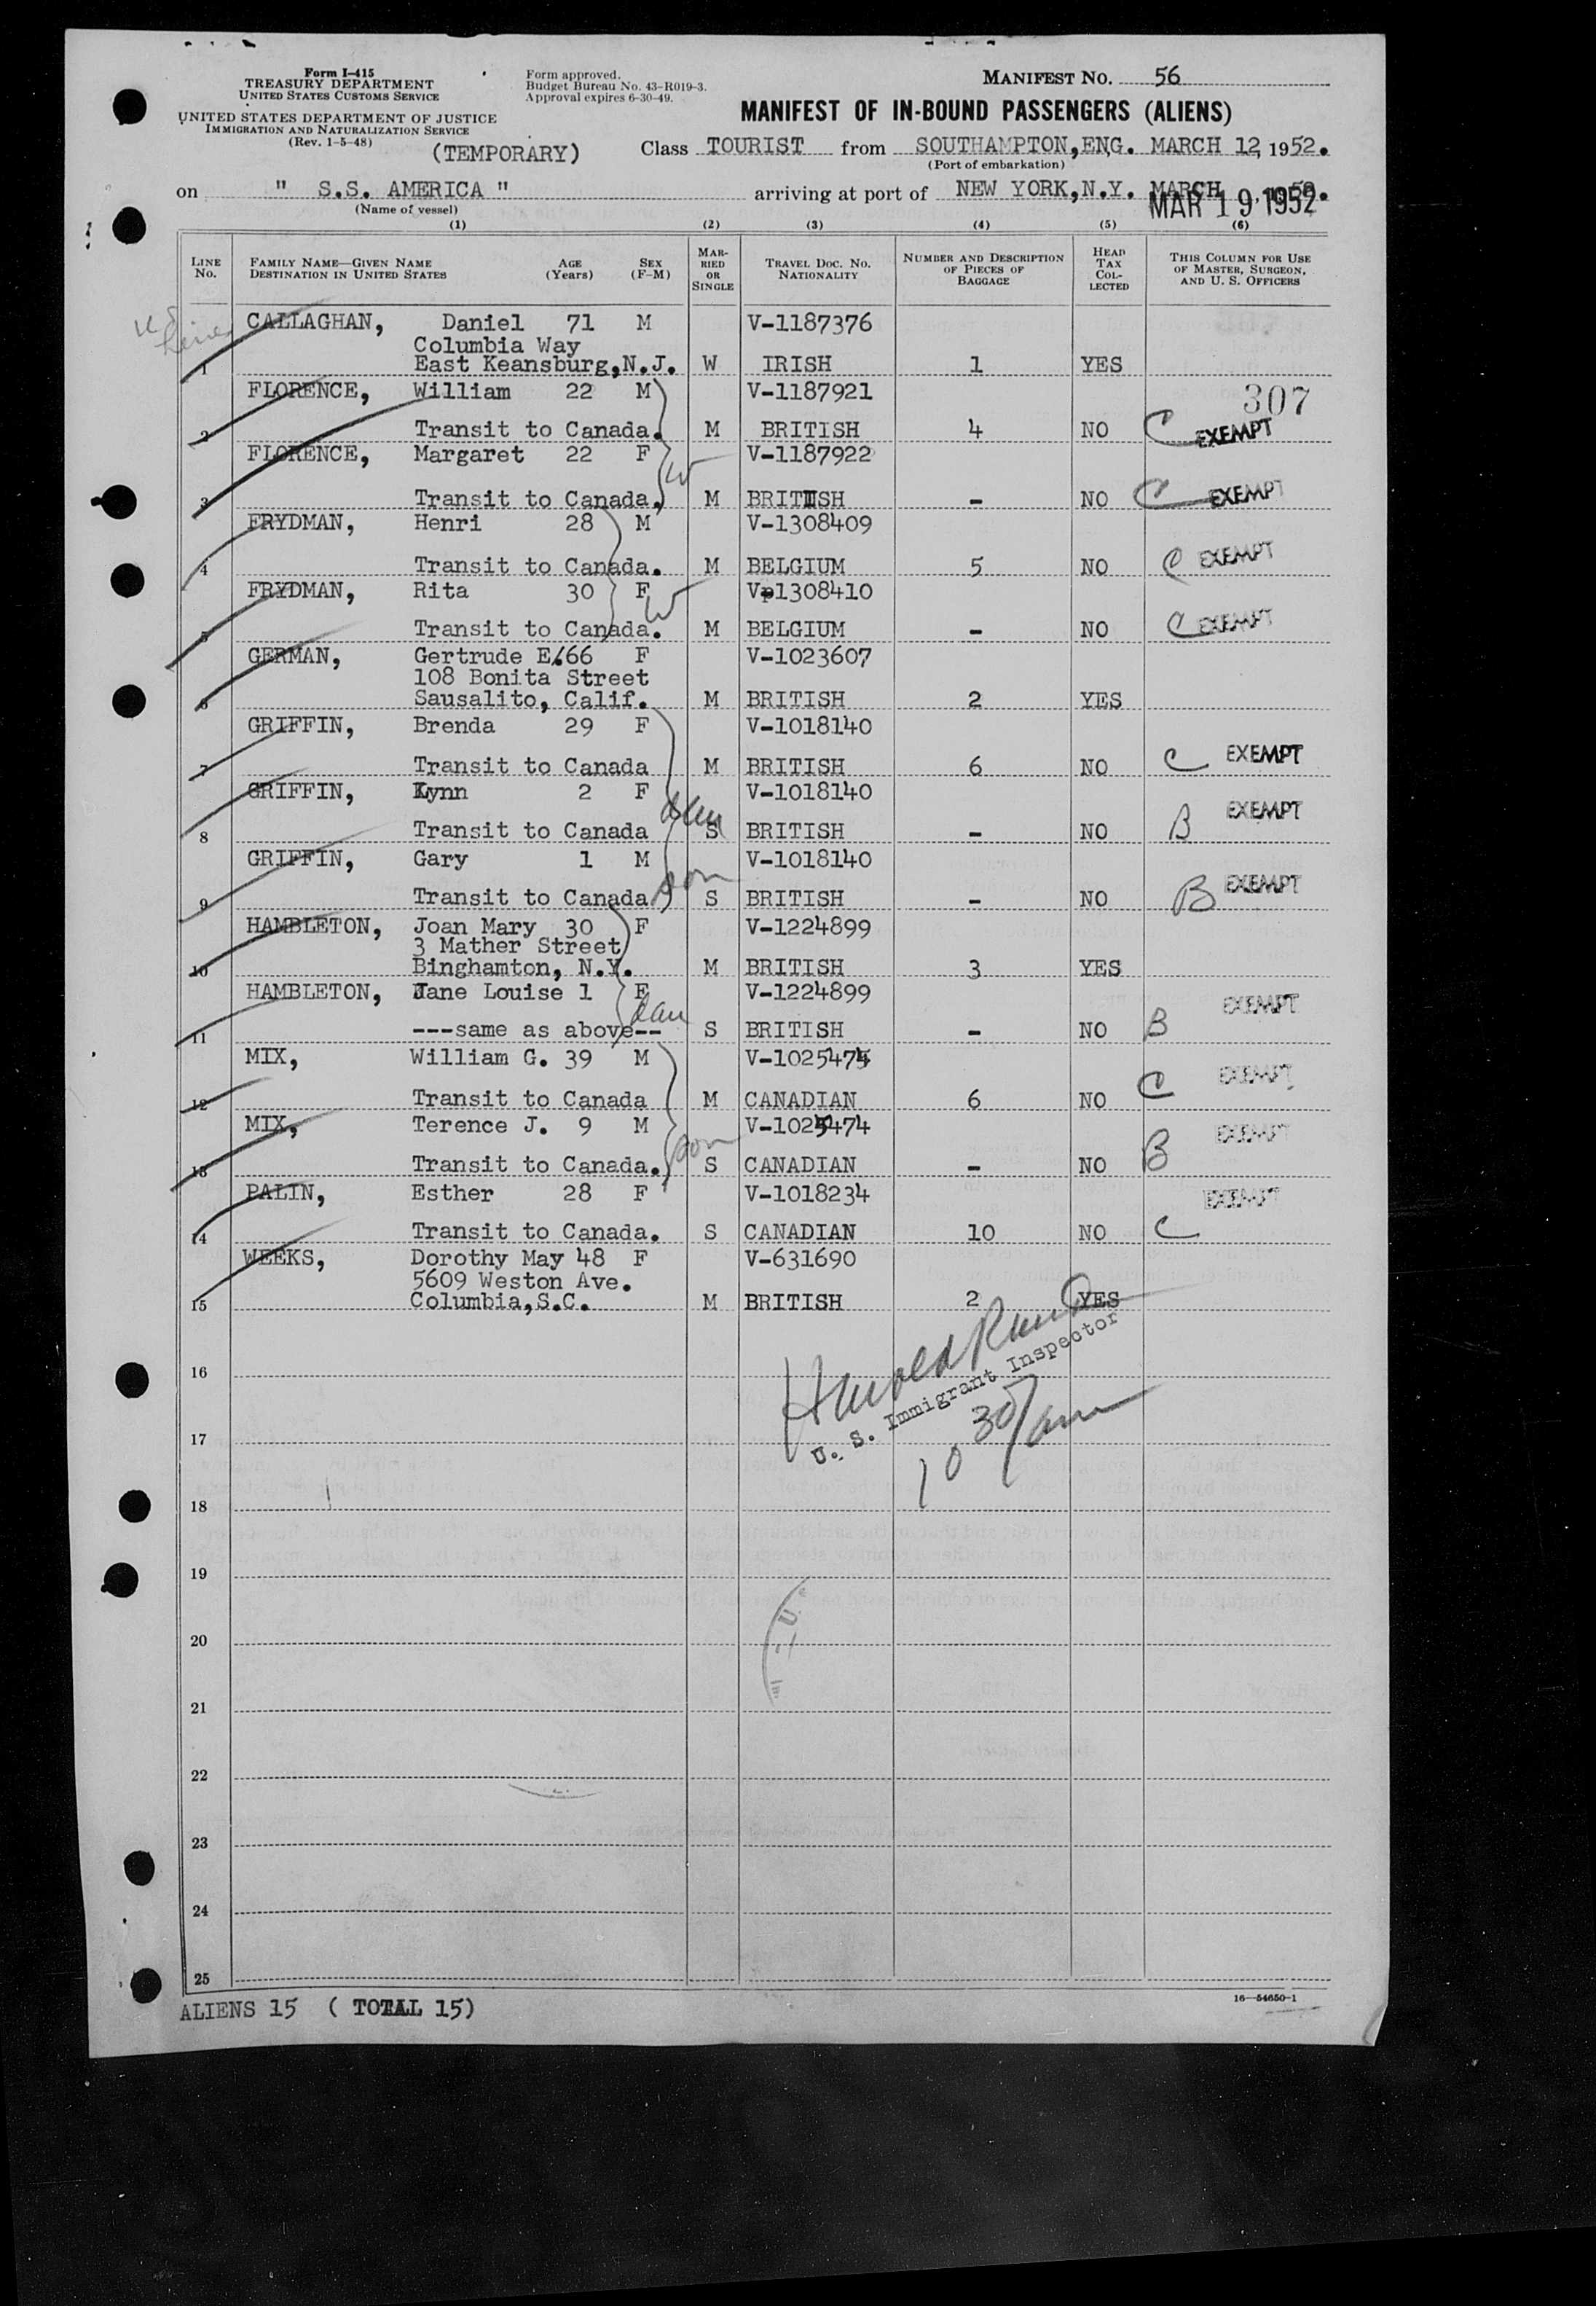 Form I-415
TREASURY DEPARTMENT
UNITED STATES CUSTOMS SERVICE
UNITED STATES DEPARTMENT OF JUSTICE
IMMIGRATION AND NATURALIZATION SERVICE
(Rev. 1-5-48)
(TEMPORARY)
Form approved.
Budget Bureau No. 43-R019-3.
Approval expires 6-30-49.
MANIFEST NO. 56
MANIFEST OF IN-BOUND PASSENGERS (ALIENS)
Class TOURIST from SOUTHAMPTON,ENG. MARCH 12, 1952.
(Port of embarkation)
on " S.S. AMERICA " arriving at port of NEW YORK,N.Y. MARCH
MAR 19 1952
(Name of vessel)
(1) (2) (3) (4) (5) (6)
LINE No. FAMILY NAME—GIVEN NAME DESTINATION IN UNITED STATES AGE (Years) SEX (F-M) MARRIED OR SINGLE TRAVEL DOC. NO. NATIONALITY NUMBER AND DESCRIPTION OF PIECES OF BAGGAGE HEAD TAX COLLECTED THIS COLUMN FOR USE OF MASTER, SURGEON, AND U. S. OFFICERS
CALLAGHAN, Daniel 71 M V-1187376
Columbia Way
1 East Keansburg,N.J. W IRISH 1 YES
FLORENCE, William 22 M V-1187921 307
2 Transit to Canada. M BRITISH 4 NO C EXEMPT
FLORENCE, Margaret 22 F V-1187922
3 Transit to Canada. W M BRITISH - NO C EXEMPT
FRYDMAN, Henri 28 M V-1308409
4 Transit to Canada. M BELGIUM 5 NO C EXEMPT
FRYDMAN, Rita 30 F W V-1308410
5 Transit to Canada. M BELGIUM - NO C EXEMPT
GERMAN, Gertrude E. 66 F V-1023607
108 Bonita Street
6 Sausalito, Calif. M BRITISH 2 YES
GRIFFIN, Brenda 29 F V-1018140
7 Transit to Canada M BRITISH 6 NO C EXEMPT
GRIFFIN, Lynn 2 F V-1018140
8 Transit to Canada dau S BRITISH - NO B EXEMPT
GRIFFIN, Gary 1 M V-1018140
9 Transit to Canada son S BRITISH - NO B EXEMPT
HAMBLETON, Joan Mary 30 F V-1224899
3 Mather Street
10 Binghamton, N.Y. M BRITISH 3 YES
HAMBLETON, Jane Louise 1 F V-1224899
11 ---same as above-- dau S BRITISH - NO B EXEMPT
MIX, William G. 39 M V-1025474
12 Transit to Canada M CANADIAN 6 NO C EXEMPT
MIX, Terence J. 9 M V-1025474
13 Transit to Canada. son S CANADIAN - NO B EXEMPT
PALIN, Esther 28 F V-1018234
14 Transit to Canada. S CANADIAN 10 NO C EXEMPT
WEEKS, Dorothy May 48 F V-631690
5609 Weston Ave.
15 Columbia,S.C. M BRITISH 2 YES
Harold
U. S. Immigrant Inspector
10 30/am
16
17
18
19
20
21
22
23
24
25
ALIENS 15 ( TOTAL 15)
16—54650-1